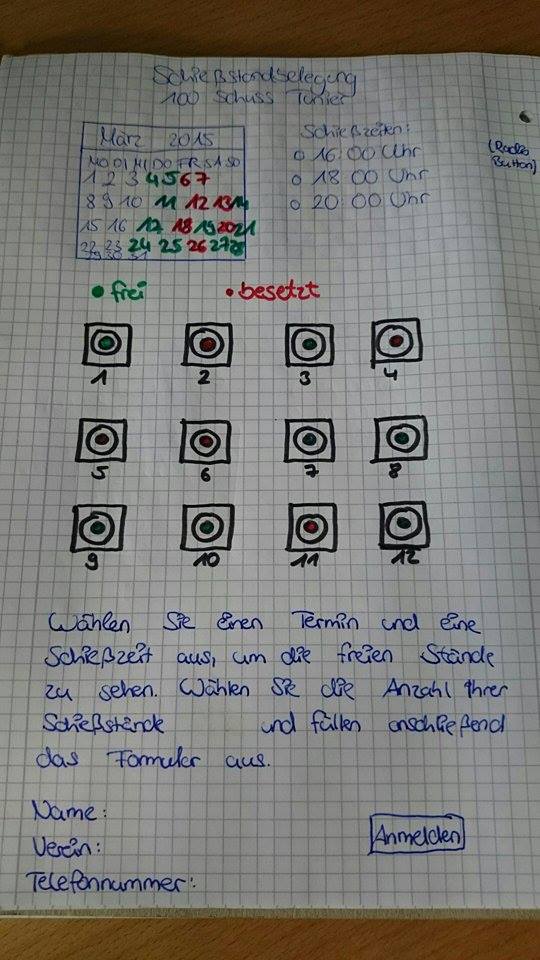 Schießstandbelegung
100 Schuss Tunier
März 2015
MO DI MI DO FR SA SO
1 2 3 4 5 6 7
8 9 10 11 12 13 14
15 16 17 18 19 20 21
22 23 24 25 26 27 28
29 30 31
Schießzeiten:
16:00 Uhr
18:00 Uhr
20:00 Uhr
(Radio
Button)
frei
besetzt
1 2 3 4
5 6 7 8
9 10 11 12
Wählen Sie einen Termin und eine
Schießzeit aus, um die freien Stände
zu sehen. Wählen Sie die Anzahl Ihrer
Schießstände und füllen anschließend
das Formular aus.
Name:
Verein:
Telefonnummer:
Anmelden